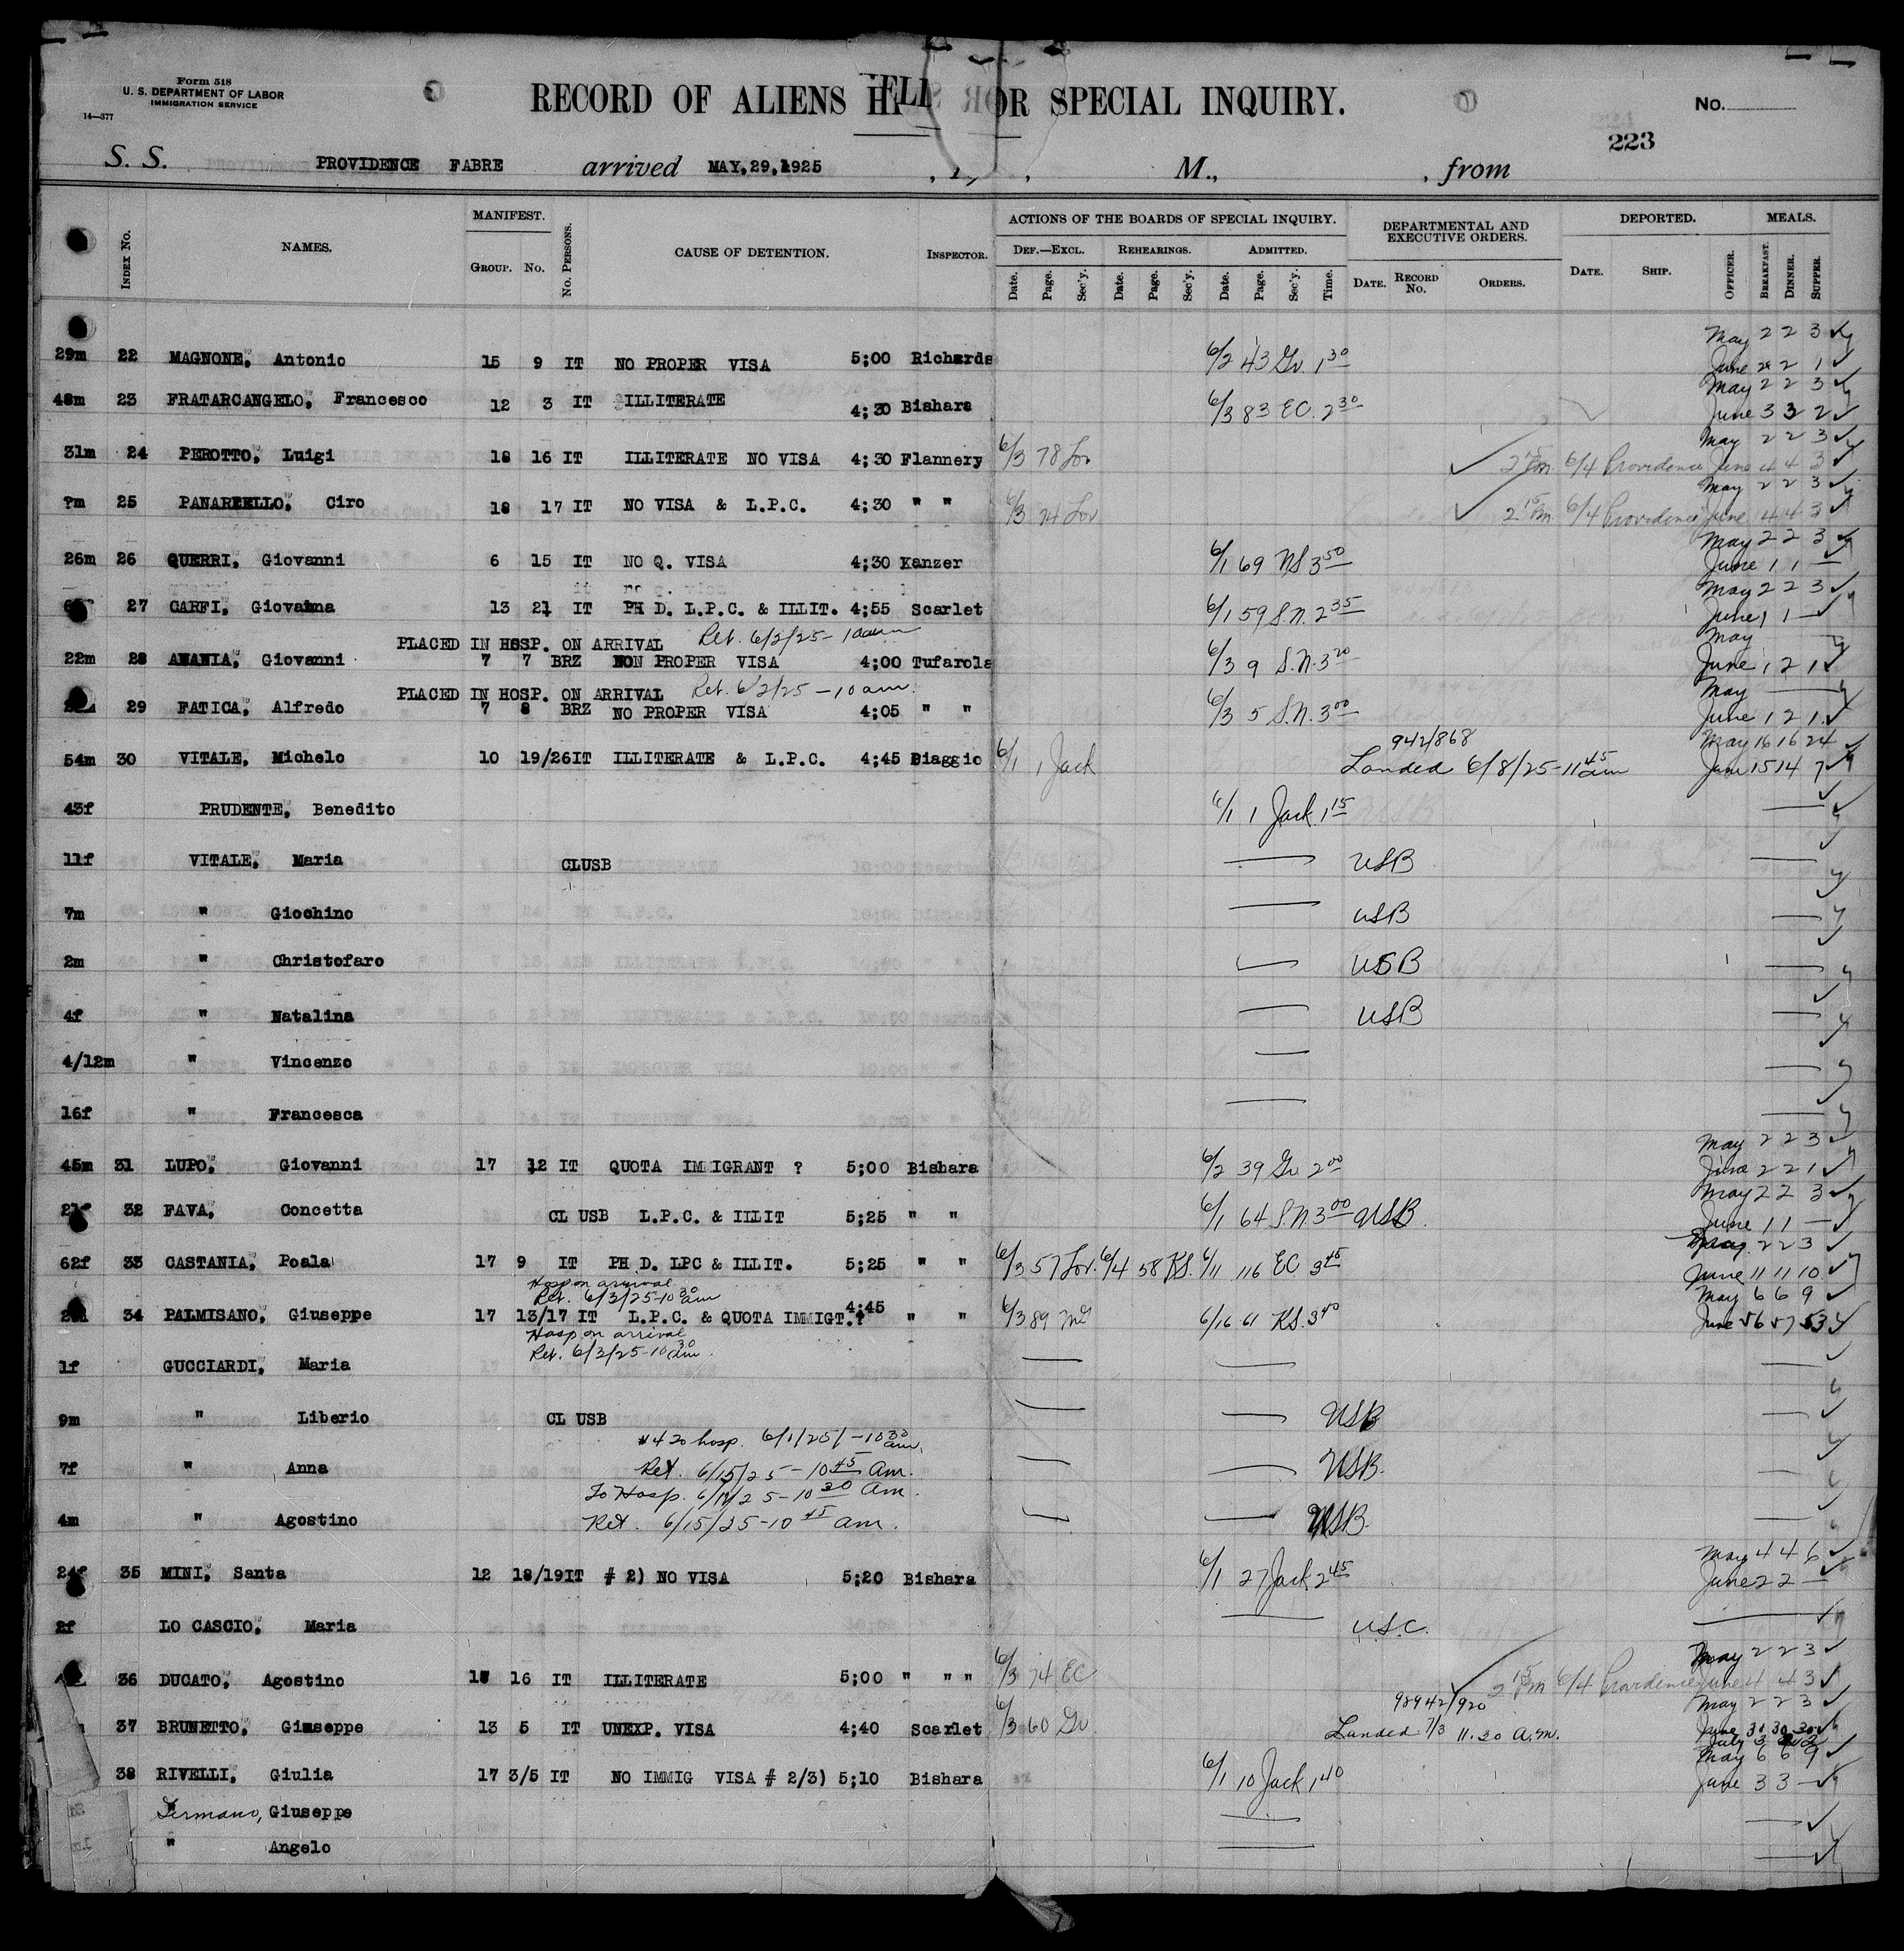 Form 518
U. S. DEPARTMENT OF LABOR
IMMIGRATION SERVICE
14—377
RECORD OF ALIENS HELD FOR SPECIAL INQUIRY.
No.
223
S. S. PROVIDENCE FABRE arrived MAY,29,1925 , 1 , M., , from
Index No. NAMES. MANIFEST. GROUP. NO. No. PERSONS. CAUSE OF DETENTION. INSPECTOR. ACTIONS OF THE BOARDS OF SPECIAL INQUIRY. DEF.—EXCL. Date. Page. Sec'y. REHEARINGS. Date. Page. Sec'y. ADMITTED. Date. Page. Sec'y. Time. DEPARTMENTAL AND EXECUTIVE ORDERS. DATE. RECORD NO. ORDERS. DEPORTED. DATE. SHIP. OFFICER. MEALS. BREAKFAST. DINNER. SUPPER.
May 2 2 3
29m 22 MAGNONE, Antonio 15 9 IT NO PROPER VISA 5:00 Richards 6/2 43 Gv. 1 30 June 2 2 1
May 2 2 3
48m 23 FRATARCANGELO, Francesco 12 3 IT ILLITERATE 4;30 Bishara 6/3 83 EC. 2 30 June 3 3 2
May 2 2 3
31m 24 PEROTTO, Luigi 18 16 IT ILLITERATE NO VISA 4;30 Flannery 6/3 78 Lov 2 15 Pm. 6/4 Providence June 4 4 3
May 2 2 3
?m 25 PANARELLO, Ciro 18 17 IT NO VISA & L.P.C. 4;30 " " 6/3 74 Lov 2 15 Pm 6/4 Providence June 4 4 3
May 2 2 3
26m 26 QUERRI, Giovanni 6 15 IT NO Q. VISA 4;30 Kanzer 6/1 69 NS 3 50 June 1 1 —
May 2 2 3
27 CARFI, Giovanna 13 21 IT PH D. L.P.C. & ILLIT. 4;55 Scarlet 6/1 59 S.N. 2 35 June 1 1 —
PLACED IN HOSP. ON ARRIVAL Ret. 6/2/25 – 10 am May
22m 28 ANANIA, Giovanni 7 7 BRZ NON PROPER VISA 4:00 Tufarola 6/3 9 S.N. 3 20 June 1 2 1
PLACED IN HOSP. ON ARRIVAL Ret. 6/2/25 – 10 am. May —
29 FATICA, Alfredo 7 8 BRZ NO PROPER VISA 4;05 " " 6/3 5 S.N. 3 00 June 1 2 1
942/868 May 16 16 24
54m 30 VITALE, Michelo 10 19/26 IT ILLITERATE & L.P.C. 4;45 Biaggio 6/1 1 Jack Landed 6/8/25 – 11 45 am June 15 14 7
43f PRUDENTE, Benedito 6/1 1 Jack 1 15 —
11f VITALE, Maria CLUSB — USB —
7m " Giochino — USB —
2m " Christofaro — USB —
4f " Natalina — USB —
4/12m " Vincenzo — —
16f " Francesca — —
May 2 2 3
45m 31 LUPO, Giovanni 17 12 IT QUOTA IMMIGRANT ? 5;00 Bishara 6/2 39 Gv 2 00 June 2 2 1
May 2 2 3
32 FAVA, Concetta CL USB L.P.C. & ILLIT 5;25 " " 6/1 64 S.N. 3 00 USB. June 1 1 —
May 2 2 3
62f 33 CASTANIA, Poala 17 9 IT PH D. LPC & ILLIT. 5;25 " " 6/3 57 Lov. 6/4 58 KS. 6/11 116 EC 3 45 June 11 11 10
Hosp on arrival
Ret. 6/3/25 – 10 30 am May 6 6 9
34 PALMISANO, Giuseppe 17 13/17 IT L.P.C. & QUOTA IMMIGT.? 4:45 " " 6/3 89 6/16 61 KS. 3 40 June 56 57 53
Hosp on arrival
Ret. 6/2/25 – 10 30 am.
1f GUCCIARDI, Maria — — —
9m " Liberio CL USB — — USB —
hosp. 6/1/25 – 10 30 am.
7f " Anna Ret. 6/15/25 – 10 45 am. — — USB. —
To Hosp. 6/11/25 – 10 30 am.
4m " Agostino Ret. 6/15/25 – 10 45 am. — — USB.
May 4 4 6
24f 35 MINI, Santa 12 18/19 IT # 2) NO VISA 5;20 Bishara 6/1 27 Jack 2 45 June 2 2 —
2f LO CASCIO, Maria — U.S.C. —
May 2 2 3
36 DUCATO, Agostino 18 16 IT ILLITERATE 5;00 " " " 6/3 74 EC 2 15 Pm 6/4 Providence June 4 4 3
98942/920 May 2 2 3
37 BRUNETTO, Giuseppe 13 5 IT UNEXP. VISA 4;40 Scarlet 6/3 60 Gv. Landed 7/3 11.30 A.M. June 30 30 30
July 3
May 6 6 9
38 RIVELLI, Giulia 17 3/5 IT NO IMMIG VISA # 2/3) 5;10 Bishara 6/1 10 Jack 1 40 June 3 3 —
Germano, Giuseppe — —
" Angelo — —